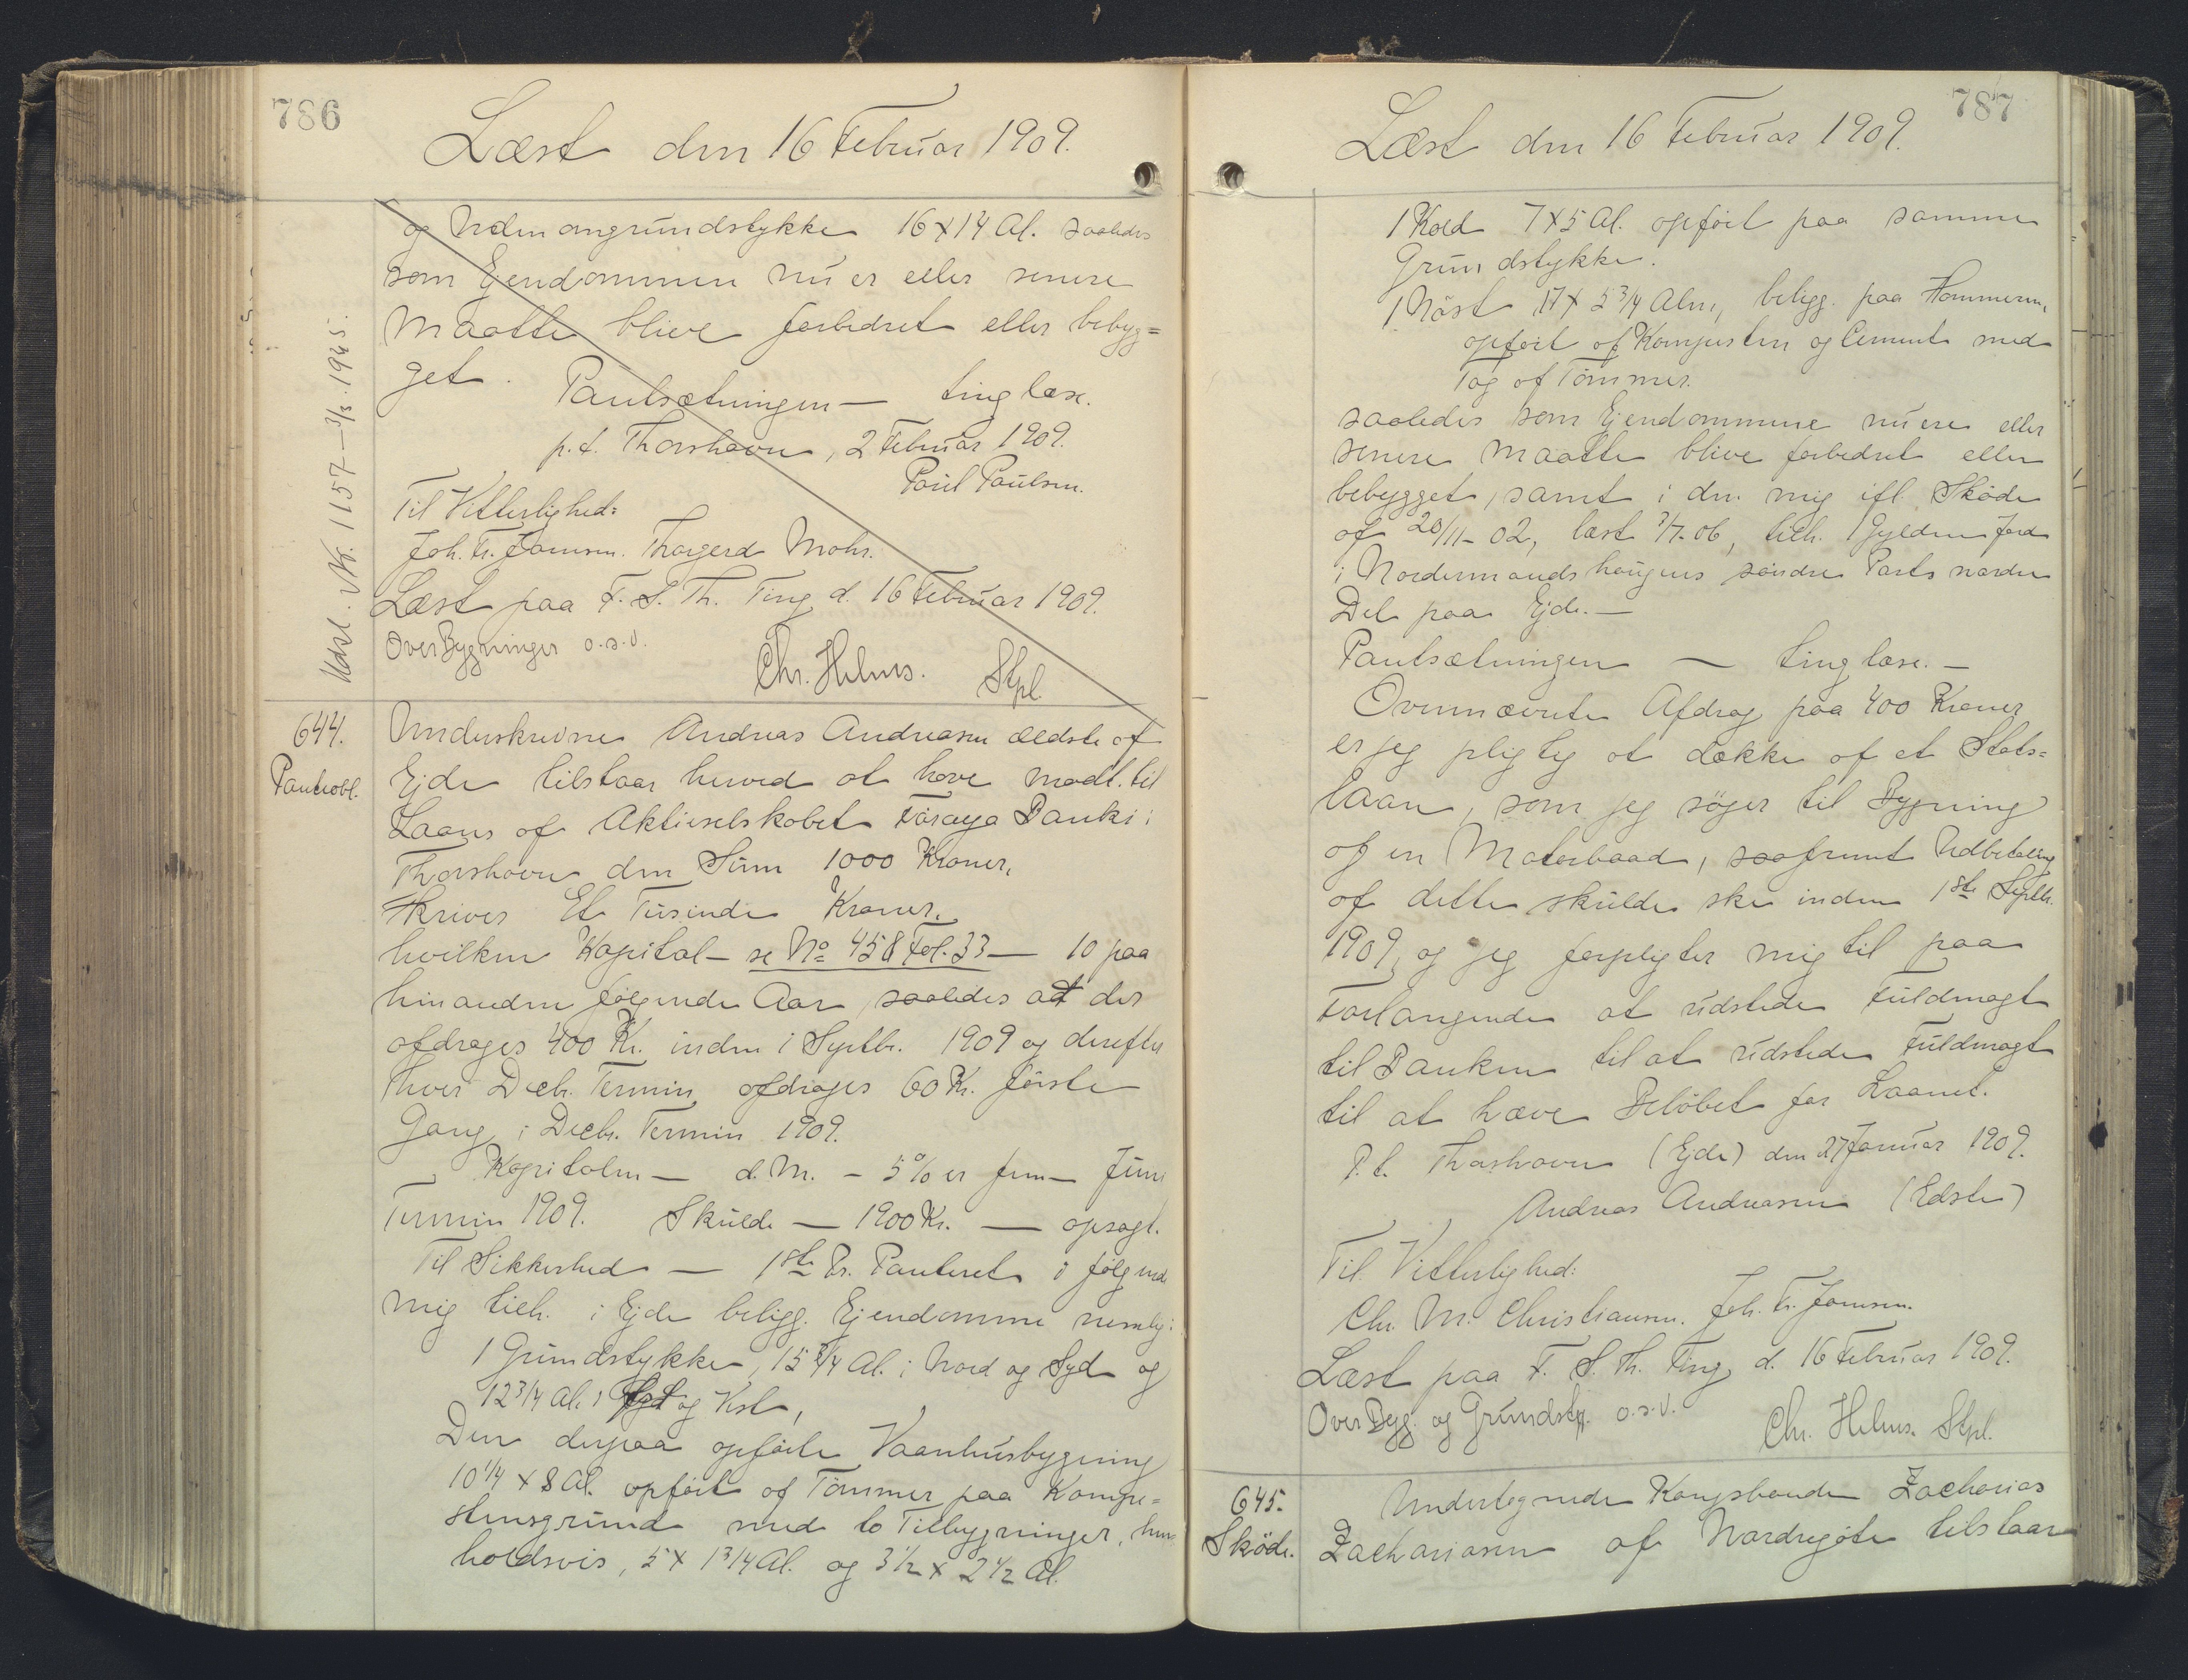 786
Læst den 16 Februar 1909.
og Udmangrundstykke 16 x 14 Al. saaledes
som Ejendommen nu er eller senere
maatte blive forbedret eller bebyg=
get.
Pantsætningen — tinglæse.
p.t. Thorshavn, 2 Februar 1909.
Poul Poulsen.
Til Vitterlighed:
Joh. Fr. Joensen. Thorgerd Mohr.
Læst paa F. S. Th. Ting d. 16 Februar 1909.
Over Bygninger o.s.v.
Chr. Helms. Stpl.
Udsl. Nr. 1157 - 3/3. 1925.
644.
Panteobl.
Underskrevne Andreas Andreasen ældste af
Ejde tilstaar herved at have modt. til
Laans af Aktieselskabet Föroya Banki i
Thorshavn den Sum 1000 Kroner,
skriver Et Tusinde Kroner,
hvilken Kapital — se No 458 Fol. 33 — 10 paa
hinanden følgende Aar, saaledes at der
afdrages 400 Kr. inden 1 Septbr. 1909 og derefter
hver Decb. Termin afdrages 60 Kr. første
Gang i Decbr. Termin 1909.
Kapitalen — d. M. — 5% er fem — Juni
Termin 1909. Skulde — 1900 Kr. — opsagt.
Til Sikkerhed — 1ste Pr. Panteret i følgende
mig tilh. i Ejde beligg. Ejendomme nemlig:
1 Grundstykke, 15 3/4 Al. i Nord og Syd og
12 3/4 Al. i og Vest,
Den derpaa opførte Vaanhusbygning
10 1/4 x 8 Al. opført af Tömmer paa Kampe=
stensgrund med to Tilbygninger, hen
holdsvis, 5 x 1 3/4 Al. og 3 1/2 x 2 1/2 Al.
787
Læst den 16 Februar 1909.
1 Kold 7 x 5 Al. opført paa samme
Grundstykke.
1 Nöst 17 x 5 3/4 Alen, beligg. paa Hammeren,
opført af Kampesten og Cement med
Tag af Tömmer.
saaledes som Ejendommene nu ere eller
senere maatte blive forbedret eller
bebygget, samt i den mig ifl. Sköde
af 20/11-02, læst 7/7-06, tilh. 1 Gylden Jord
i Nordermandshaugens søndre Parts nordre
Del paa Ejde. —
Pantsætningen — tinglæse. —
Ovennævnte Afdrag paa 400 Kroner
er jeg pligtig at dække af et Stats=
laan, som jeg söger til Bygning
af en Motorbaad, saafremt Udbetaling
af dette skulde ske inden 1ste Septbr.
1909, og jeg forpligter mig til paa
Forlangende at udstede Fuldmagt
til Banken til at udstede Fuldmagt
til at hæve Beløbet for Laanet.
P.t. Thorshavn (Ejde) den 27 Januar 1909.
Andreas Andreasen (Edste)
Til Vitterlighed:
Chr. M. Christiansen. Joh. Fr. Joensen.
Læst paa F. S. Th. Ting, d. 16 Februar 1909.
Over Bygg. og Grundstk. o.s.v.
Chr. Helms. Stpl.
645.
Sköde.
Undertegnede Kongsbonde Zacharias
Zachariasen af Nordregöte tilstaar